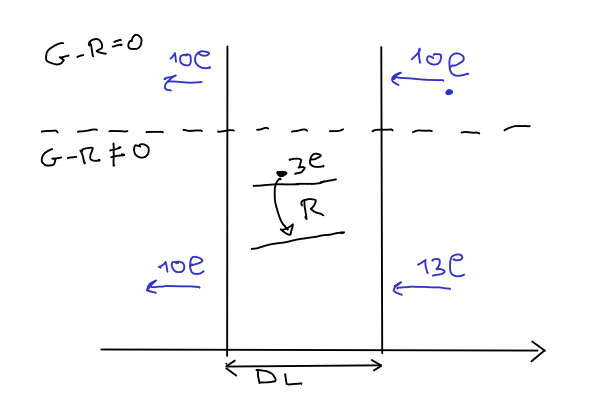 G-R=0
10e
10e
G-R≠0
3e
R
10e
13e
DL